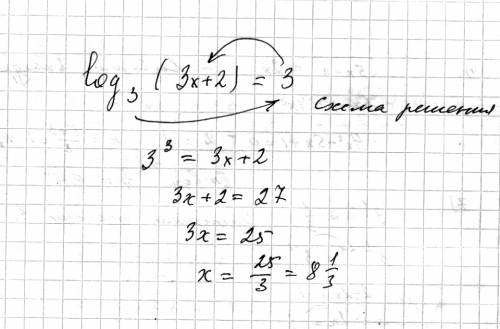 log₃ (3x+2) = 3
схема решения
3³ = 3x+2
3x+2 = 27
3x = 25
x = 25/3 = 8 1/3